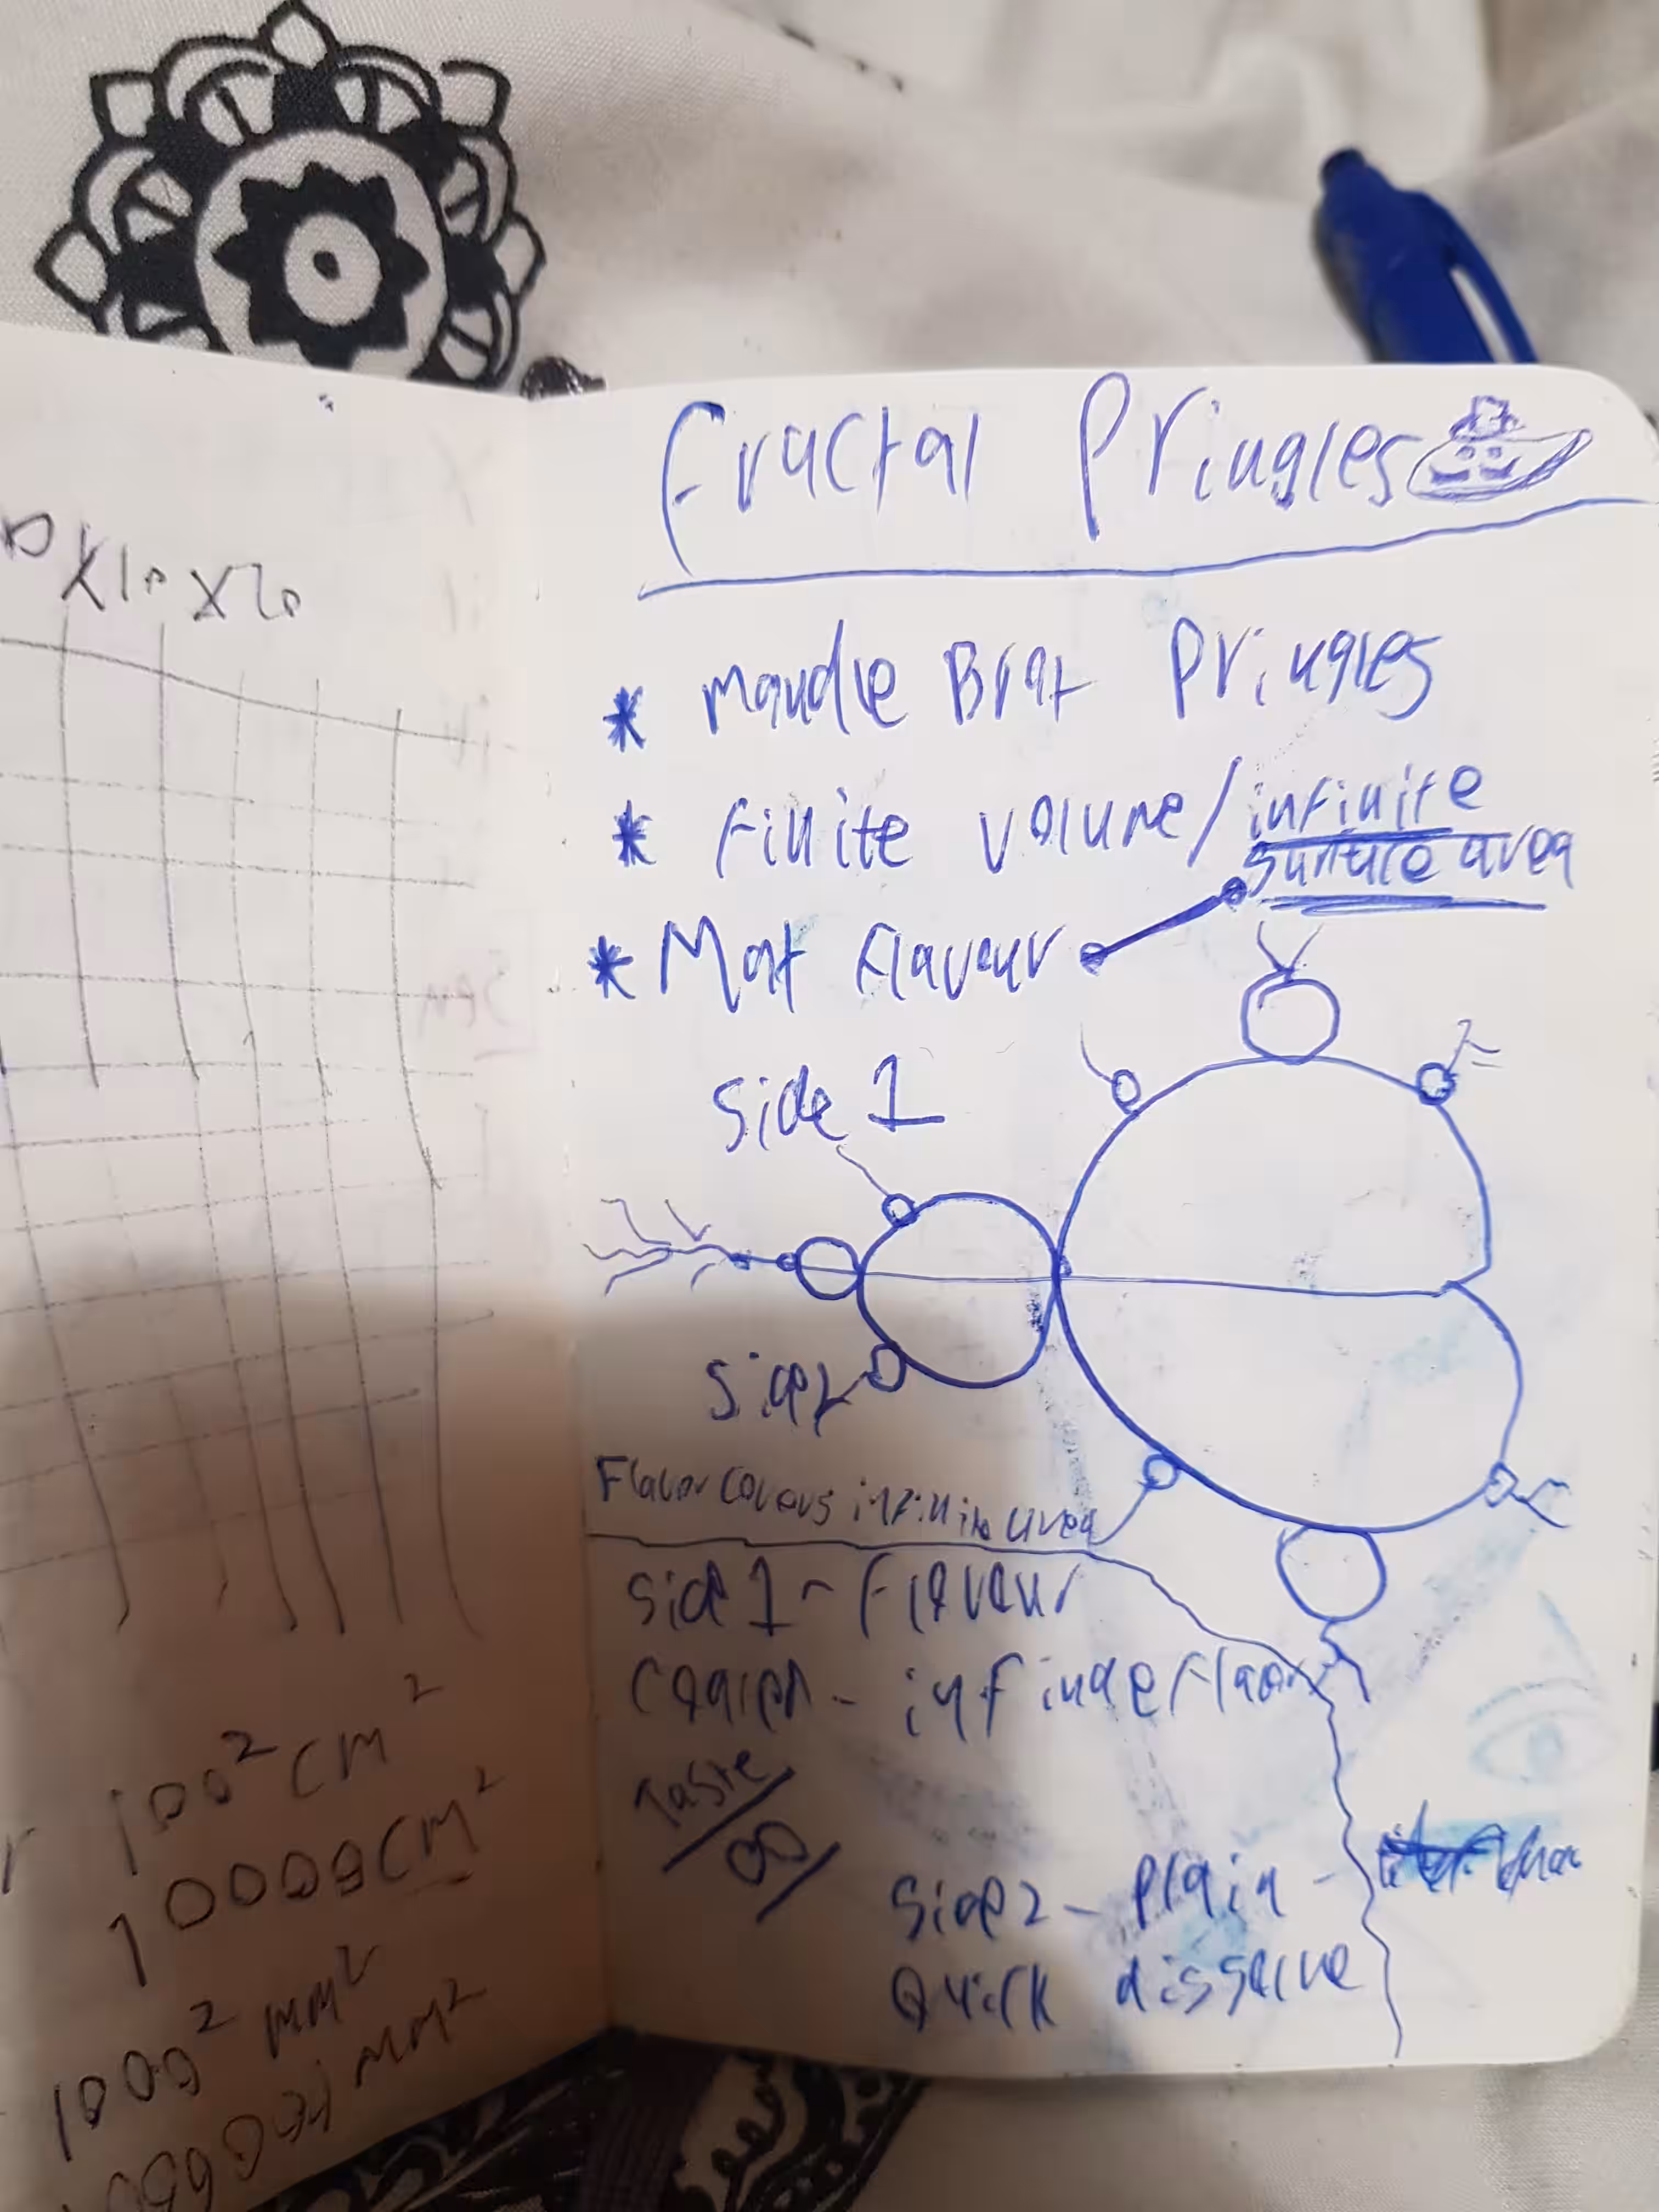 x10 x20
100² cm²
10000 cm²
1000² mm²
mm²
Fractal Pringles
* Mandle Brot Pringles
* Finite volume / infinite
surface area
* Mat Flavour
Side 1
Side 2
Flavor covers infinite area
Side 1 - Flavour
- infinite
Taste
∞
Side 2 - Plain -
Quick dissolve